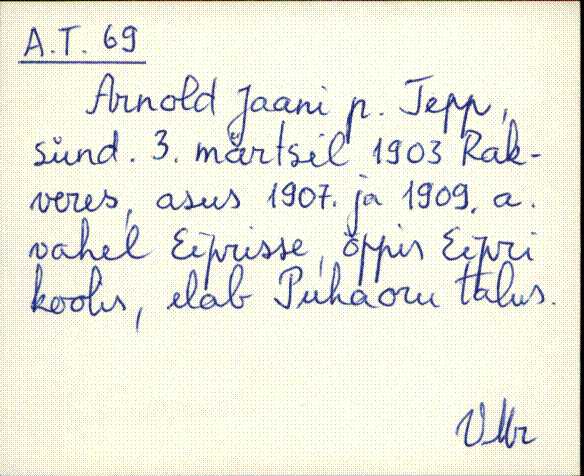 A.T. 69
Arnold Jaani p. Tepp,
sünd. 3. märtsil 1903 Rak-
veres, asus 1907. ja 1909. a.
vahel Eiprisse, õppis Eipri
koolis, elab Pühaoru talus.
VMr